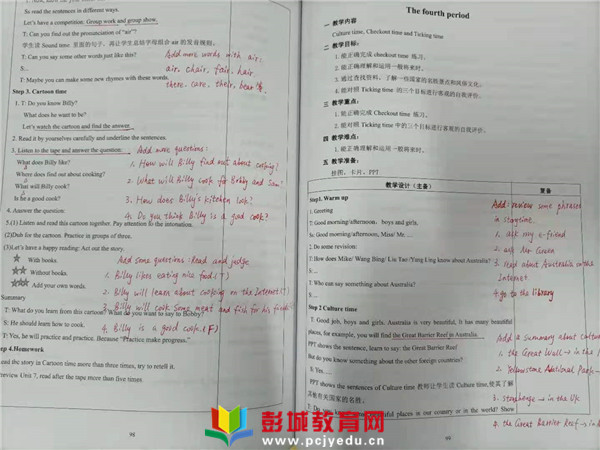 So read the sentences in different ways.
Let's have a competition. Group work and group show.
T: Can you find out the pronunciation of "air"?
学生读 Sound time 里面的句子，再让学生总结字母组合 air 的发音规则。
T: Can you say some other words just like this?
Add more words with air.
S...
air, chair, fair, hair
T: Maybe you can make some new rhymes with these words.
there, care, their, bear 等.
Step 3. Cartoon time
1. T: Do you know Billy?
What does he want to be?
Let's watch the cartoon and find the answer.
2. Read it by yourselves carefully and underline the sentences.
3. Listen to the tape and answer the question:
Add more questions:
What does Billy like?
1. How will Billy find out about cooking?
Where does find out about cooking?
2. What will Billy cook for Bobby and Sam?
What will Billy cook?
3. How does Billy's kitchen look?
Is he a good cook?
4. Do you think Billy is a good cook?
4. Answer the question:
5.(1) Listen and read this cartoon together. Pay attention to the intonation.
(2)Dub for the cartoon. Practice in groups of three.
(3)Let's have a happy reading: Act out the story.
With books.
Add some questions: Read and judge
Without books.
1. Billy likes eating nice food. (T)
Add your own words.
2. Billy will learn about cooking on the Internet. (T)
Summary
3. Billy will cook some meat and fish for his friends
T: What do you learn from this cartoon? What do you want to say to Bobby?
S: He should learn how to cook.
4. Billy is a good cook. (F)
T: Yes, he will practice and practice. Because "Practice makes progress."
Step 4.Homework
Read the story in Cartoon time more than three times, try to retell it.
review Unit 7, read after the tape more than five times
98
The fourth period
一 教学内容
Culture time, Checkout time and Ticking time
二 教学目标:
1. 能正确完成 checkout time 练习。
2. 能正确理解和运用一般将来时。
3. 通过查找资料，了解一些国家的名胜景点和民俗文化。
4. 能对照 Ticking time 的三个目标进行客观的自我评价。
三 教学重点:
1. 能正确完成 Checkout time 练习。
2. 能对照 Ticking time 中的三个目标进行客观的自我评价。
四 教学难点:
1. 能正确理解和运用一般将来时。
五 教学准备:
挂图，卡片，PPT
教学设计（主备）
复备
Step1. Warm up
1. Greeting
T: Good morning/afternoon, boys and girls.
S: Good morning/afternoon, Miss/ Mr. ...
2. Do some revision:
T: How does Mike/ Wang Bing/ Liu Tao/ Yang Ling know about Australia?
S: ...
T: Who can say something about Australia?
S: ...
Add: review some phrases
in storytime
1. ask my e-friend
2. ask Mr Green
3. read about Australia on the
Internet
4. go to the library
Step 2 Culture time
T: Good job, boys and girls. Australia is very beautiful, it has many beautiful
places, for example, you will find the Great Barrier Reef in Australia.
PPT shows the sentence, learn to say: the Great Barrier Reef
But do you know something about the other foreign countries?
S: Yes....
PPT shows the sentences of Culture time 教师让学生读 Culture time, 使其了解
其他有关国家的名胜。
T: Do you know other beautiful places in our country or in the world? Show
Add a summary about culture
1. the Great Wall → in the
2. Yellowstone National Park →
3. Stonehenge → in the UK
4. the Great Barrier Reef → in
99
彭城教育网
www.pcjyedu.cn